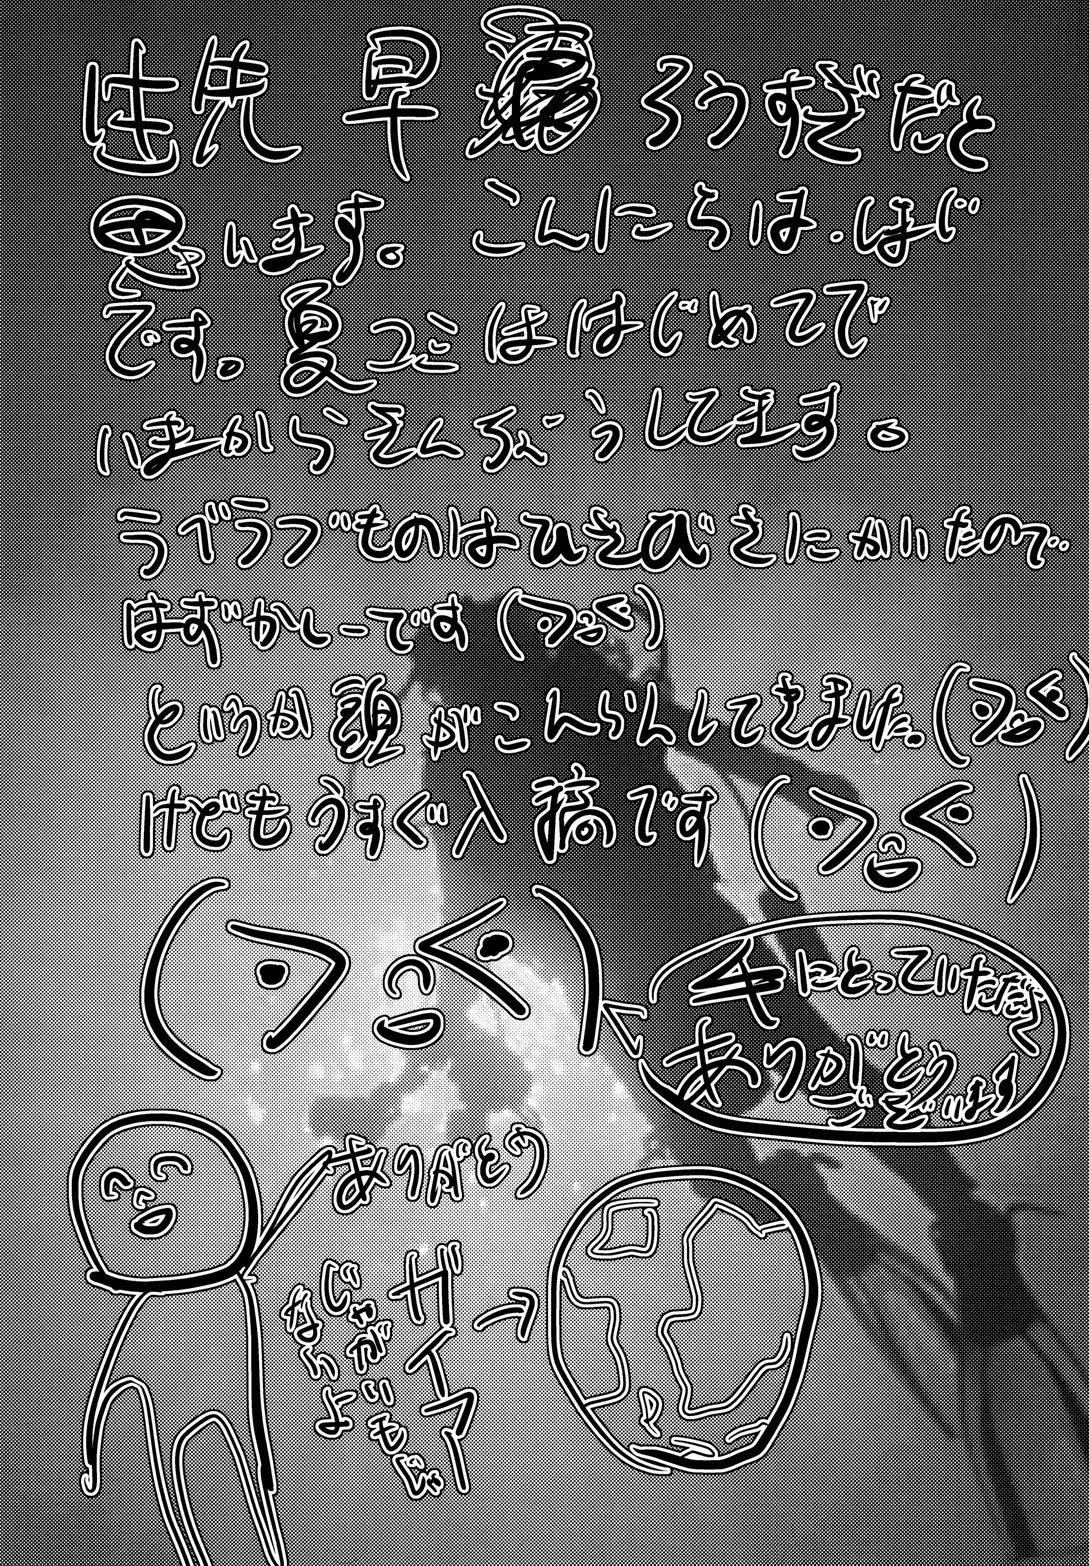 早 ろうすぎだと
思います。こんにちは。ほじ
です。夏コミははじめてで
いまからきんちょうしてます。
ラブラブものはひさびさにかいたので
はずかしーです
というか頭がこんらんしてきました。
けどもうすぐ入稿です
手にとっていただく
ありがとう
ございます
ありがとう
ガイアー
じゃがいもじゃ
ないよ